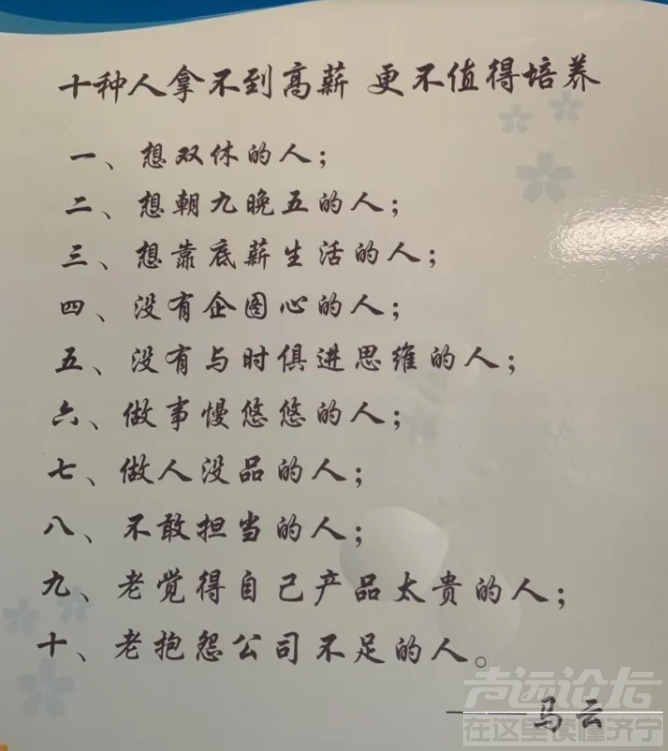 十种人拿不到高薪 更不值得培养
一、想双休的人；
二、想朝九晚五的人；
三、想靠底薪生活的人；
四、没有企图心的人；
五、没有与时俱进思维的人；
六、做事慢悠悠的人；
七、做人没品的人；
八、不敢担当的人；
九、老觉得自己产品太贵的人；
十、老抱怨公司不足的人。
——马云
声远论坛
在这里读懂济宁